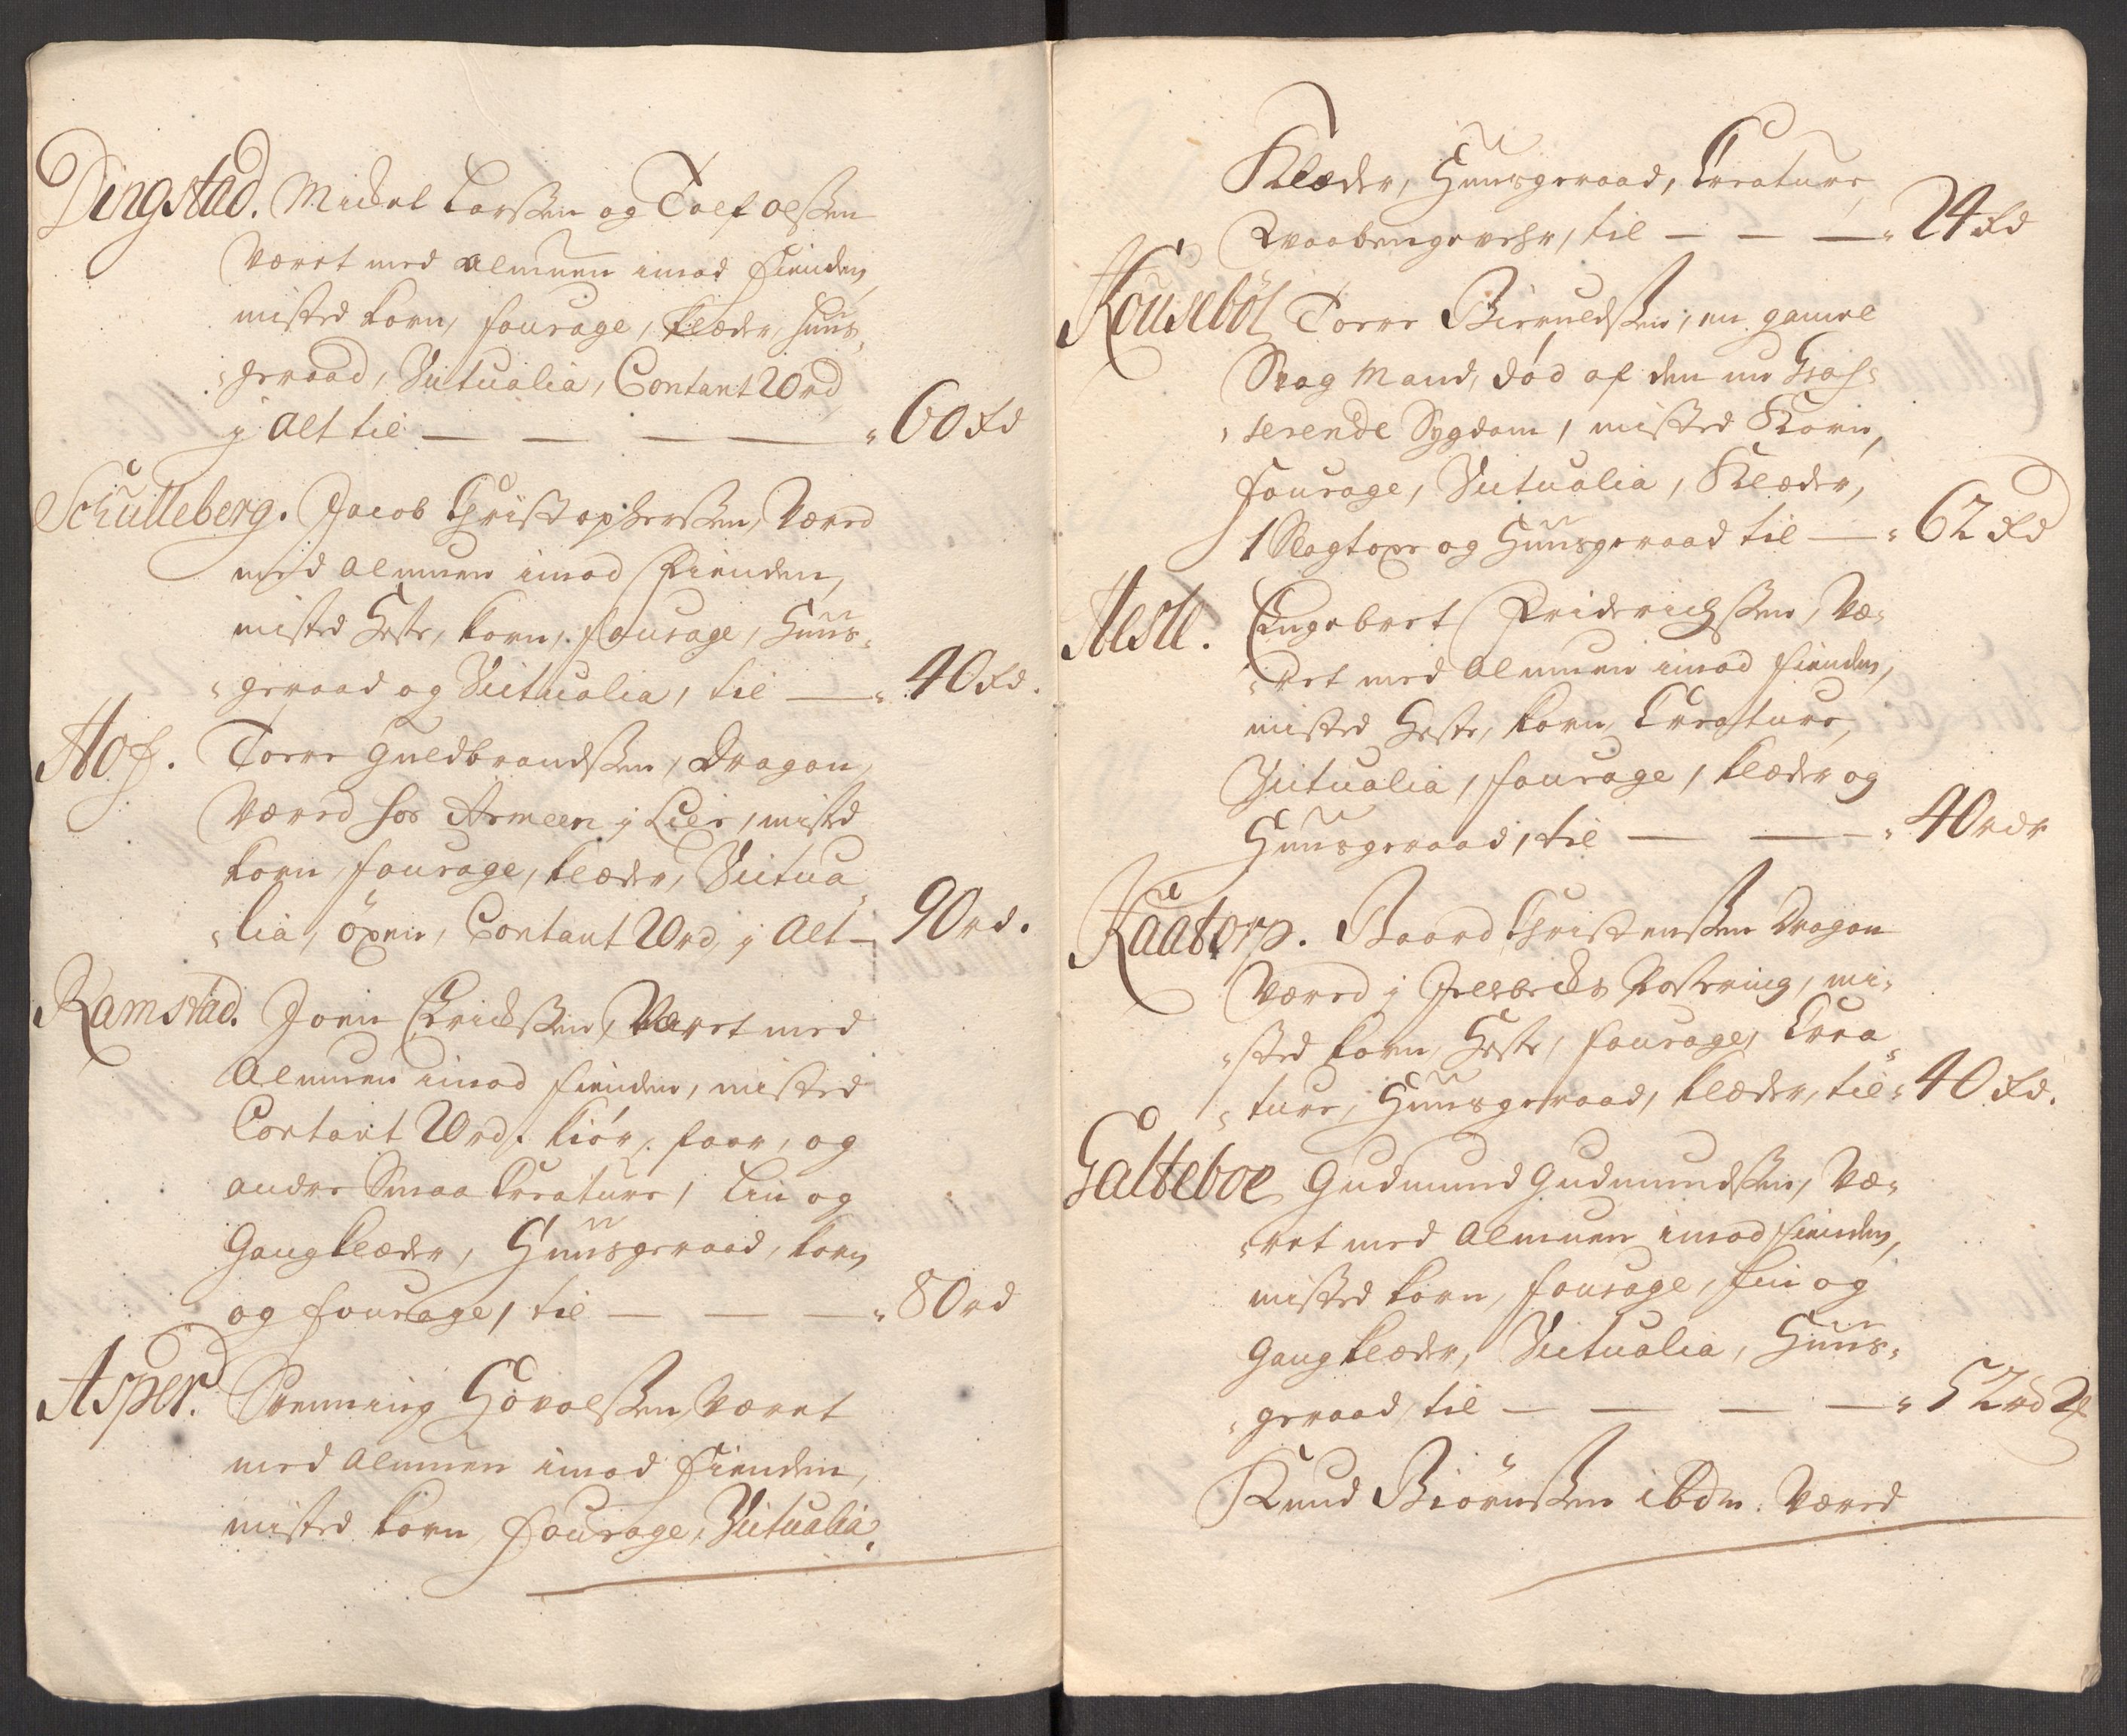 Dingstad. Michel Larssen og Tolf Olssen
Været med Almuen imod Fienden,
misted korn, fourage, klæder, huus-
geraad, Victualia, Contant 20rd
j Alt til — — — — 60 rd
Schulleberg. Jacob Christophersen, Væred
med Almuen imod Fienden,
misted Heste, korn, fourage, Huus-
geraad og Victualia, til — 40 rd.
Hof. Torre Guldbrandssen, Dragon,
Væred hos Armeen j Lier, misted
korn, fourage, klæder, Victua-
lia, öxen, Contant 20rd, j Alt — 90rd.
Ramstad. Joen Erichssen, Været med
Almuen imod Fienden, misted
Contant 20rd. kiör, faar, og
andre Smaa Creature, Lin og
Gangklæder, Huusgeraad, korn
og fourage, til — — — 80rd
Asper. Svenning Hovolssen, Været
med Almuen imod Fienden,
misted korn, fourage, Victualia,
Klæder, Huusgeraad, Creature,
Waabengevehr, til — — — 24 rd
Kousebøl Torre Biernelssen, en gamel
Svag Mand, død af den nu Gras-
serende Sygdom, misted Korn,
fourage, Victualia, Klæder,
1 Slagtoxe og Huusgeraad til — 62 rd
Aeste. Engebret Friderichssen, Væ-
ret med Almuen imod Fienden,
misted Heste, korn, Creature,
Victualia, fourage, klæder og
Huusgeraad, til — — 40rdr
Kaatorp. Baard Christenssen Dragon
Væred j Postering, mi-
sted korn, Heste, fourage, Crea-
ture, Huusgeraad, klæder, til 40 rd.
Galteboe Gudmund Gudmundssen, Væ-
ret med Almuen imod Fienden,
misted korn, fourage, Lin og
Gangklæder, Victualia, Huus-
geraad, til — — — — 52rd 2
Knud Biörnssen ibdm. Været